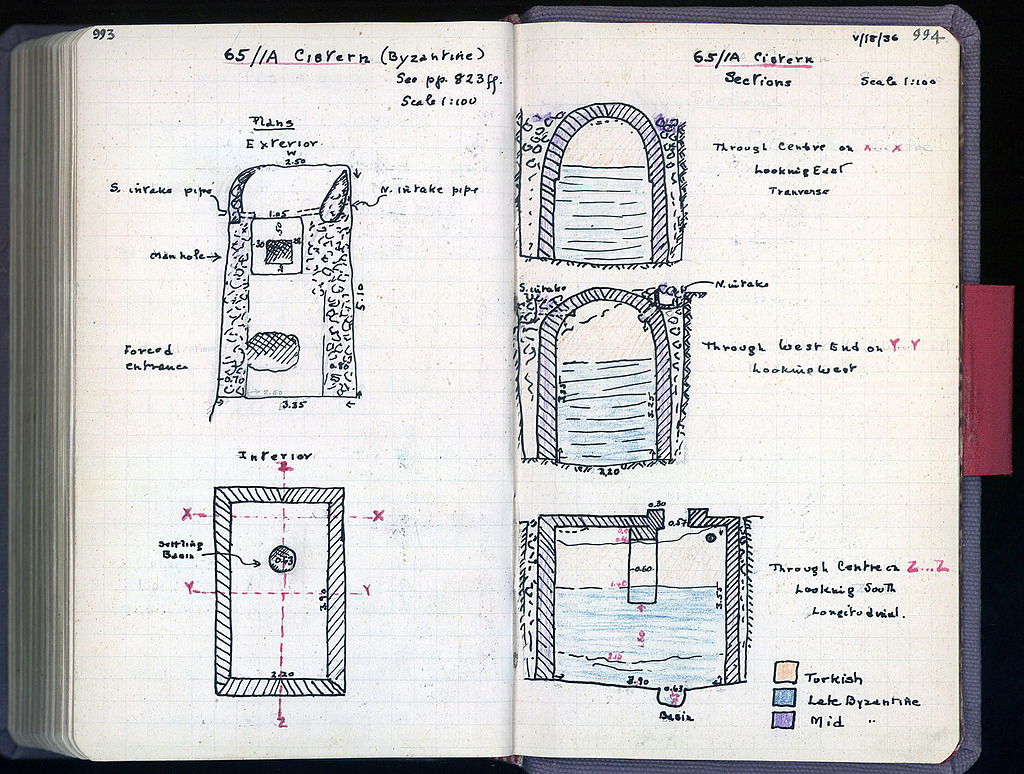 993
65/1A Cistern (Byzantine)
See pp. 823 ff.
Scale 1:100
Plans
Exterior.
W
2.50
S. intake pipe
N. intake pipe
1.05
Manhole
5.10
Forced
entrance
2.50
3.85
Interior
Z
X X
Settling
Basin
0.63
Y Y
3.90
2.20
Z
V/18/36 994
65/1A Cistern
Sections
Scale 1:100
Through Centre on X...X
Looking East
Tranverse
S. intake
N. intake
Through West End on Y...Y
Looking West
3.25
2.20
0.30
0.57
0.60
1.40
3.55
Through Centre on Z...Z
Looking South
Longitudinal.
1.80
2.15
3.90
0.63
Basin
Turkish
Late Byzantine
Mid "